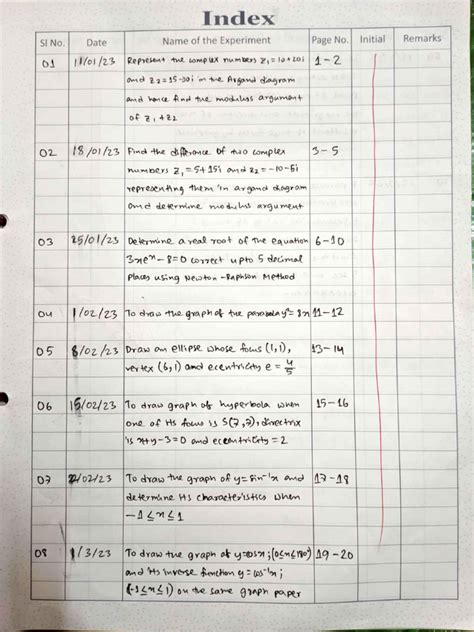 Index
Sl No. Date Name of the Experiment Page No. Initial Remarks
01 11/01/23 Represent the complex numbers z₁=10+20i 1-2
and z₂=15-30i in the Argand diagram
and hence find the modulus argument
of z₁+z₂
02 18/01/23 Find the difference of two complex 3-5
numbers z₁=5+15i and z₂=-10-5i
representing them in argand diagram
and determine modulus argument
03 25/01/23 Determine a real root of the equation 6-10
3xeˣ-8=0 correct upto 5 decimal
places using Newton-Raphson Method
04 1/02/23 To draw the graph of the parabola y²=8x 11-12
05 8/02/23 Draw an ellipse whose focus (1,1), 13-14
vertex (6,1) and eccentricity e = 4/5
06 15/02/23 To draw graph of hyperbola when 15-16
one of its focus is S(7,7), directrix
is x+y-3=0 and eccentricity=2
07 22/02/23 To draw the graph of y=sin⁻¹x and 17-18
determine its characteristics when
-1≤x≤1
08 1/3/23 To draw the graph of y=cosx; (0≤x≤180) 19-20
and its inverse function y=cos⁻¹x;
(-1≤x≤1) on the same graph paper